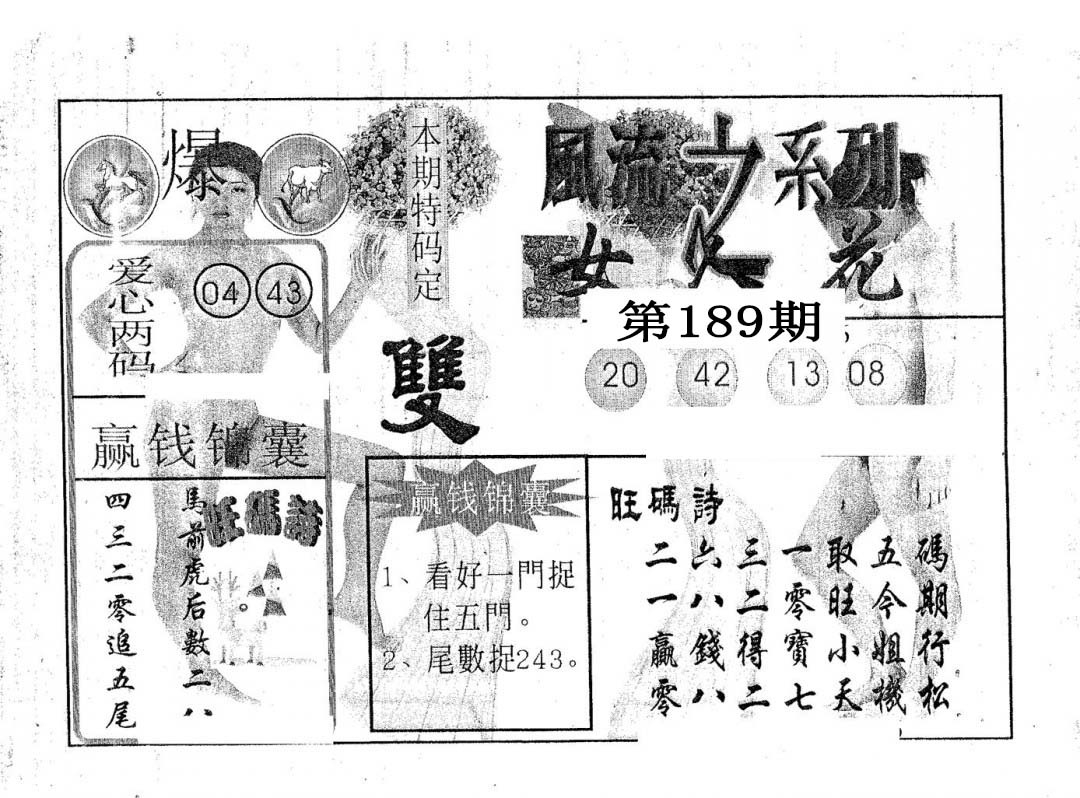 爆
爱心两码
04 43
赢钱锦囊
馬前虎后數二八
四三二零追五尾
旺碼詩
本期特码定
雙
風流之系列
女人花
第189期
20 42 13 08
赢钱锦囊
1、看好一門捉
住五門。
2、尾數捉243。
旺碼詩
碼期行松
五今姐機
取旺小天
一零寶七
三二得二
六八錢八
二一贏零